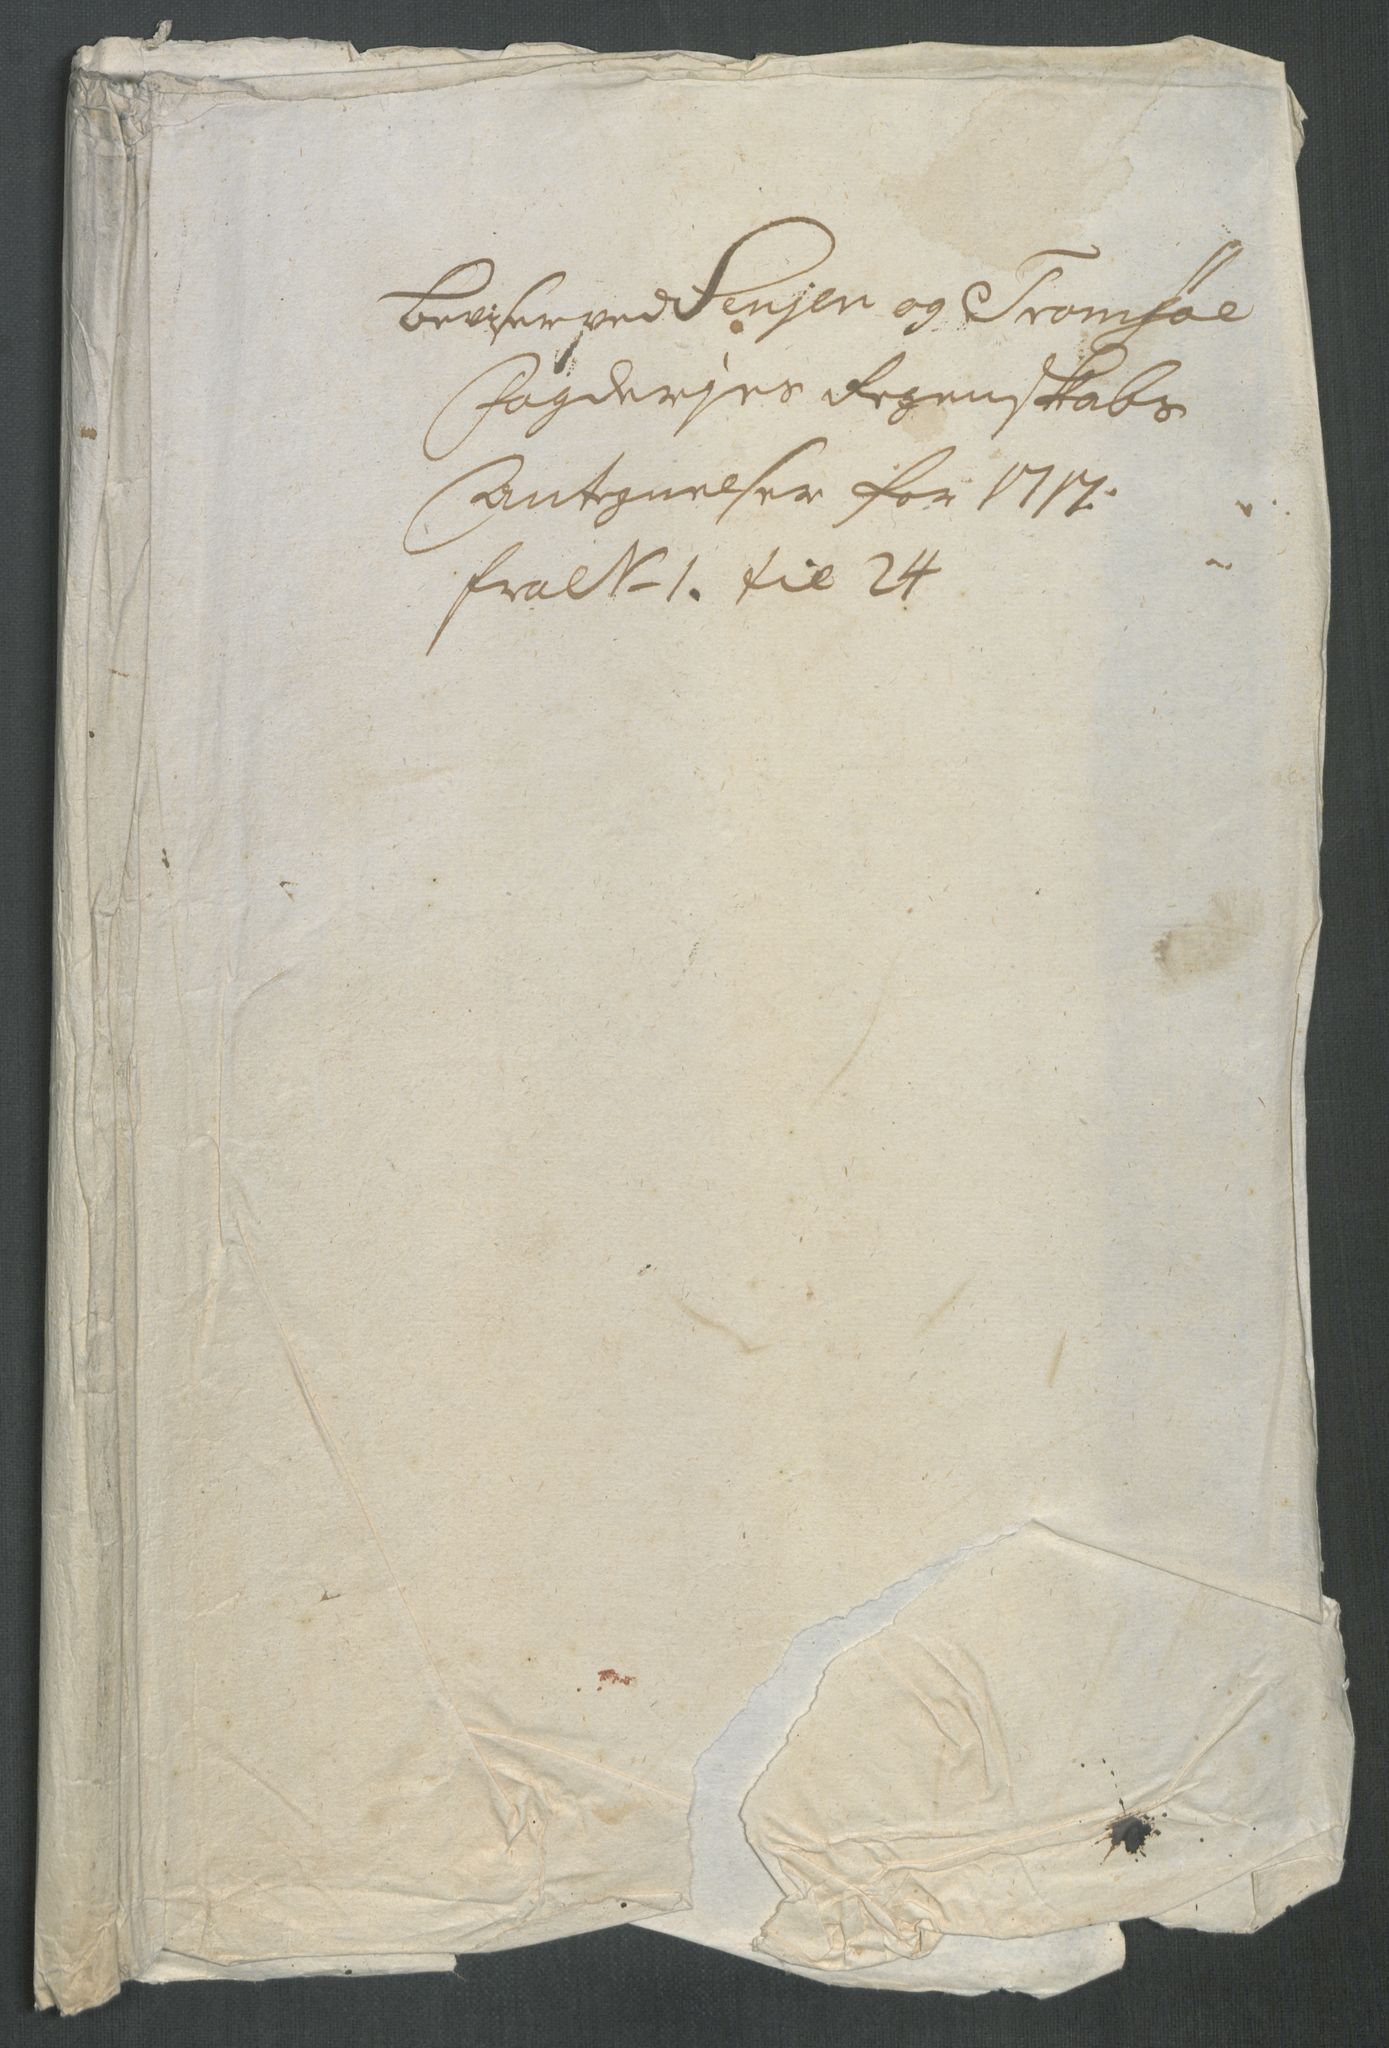 Beviser ved Senjen og Tromsøe
Fogderjes Regenskabs
Antegnelser for 1717.
fra N 1. til 24